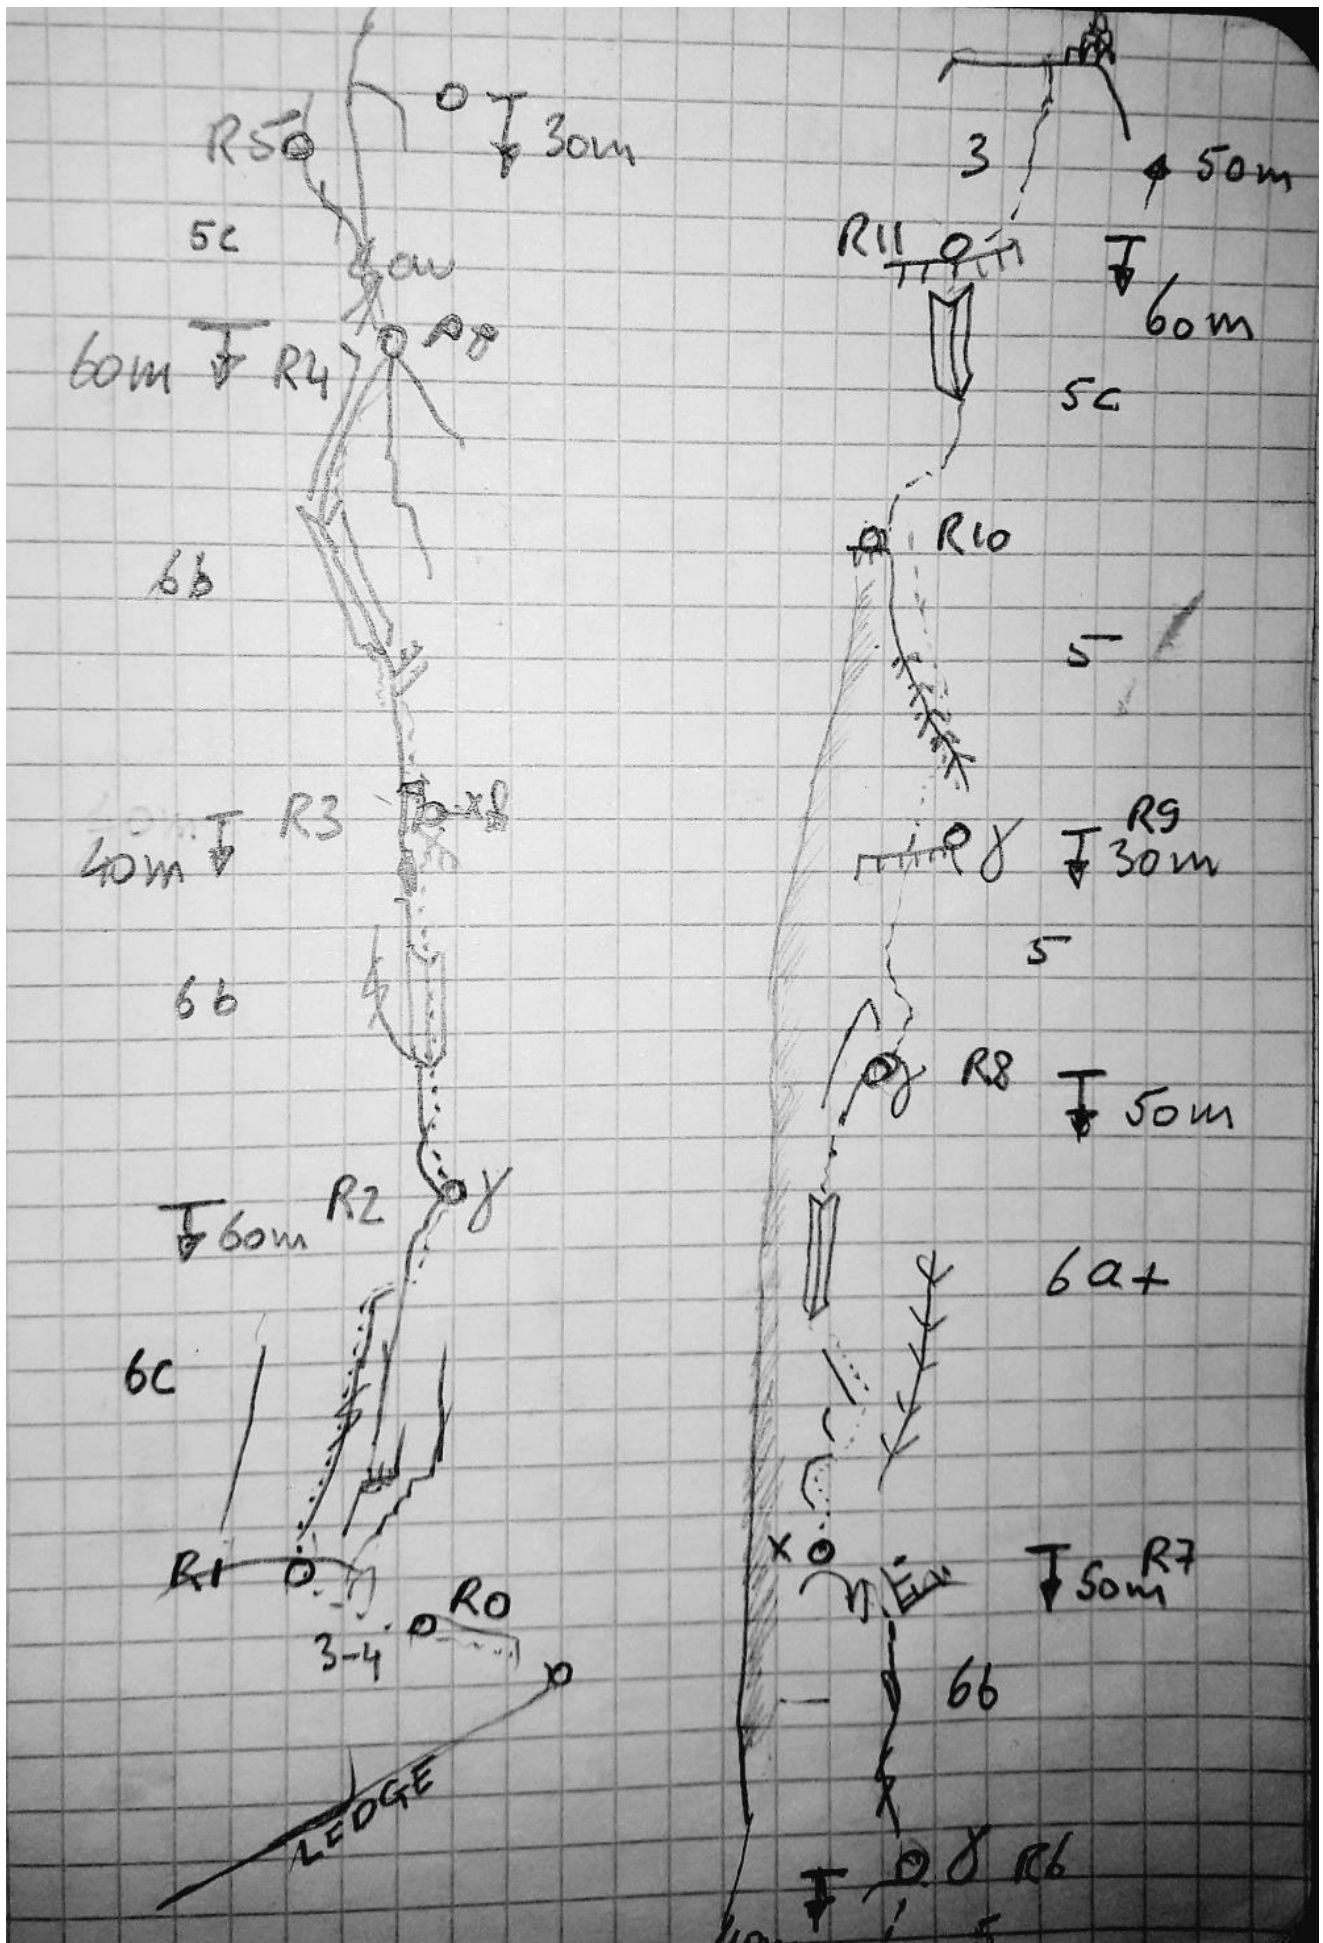 R5
30m
5c
60m R4
6b
R3
40m
6b
R2
60m
6c
R1
R0
3-4
LEDGE
3
50m
R11
60m
5c
R10
5
R9
30m
5
R8
50m
6a+
x
R7
50m
6b
R6
5